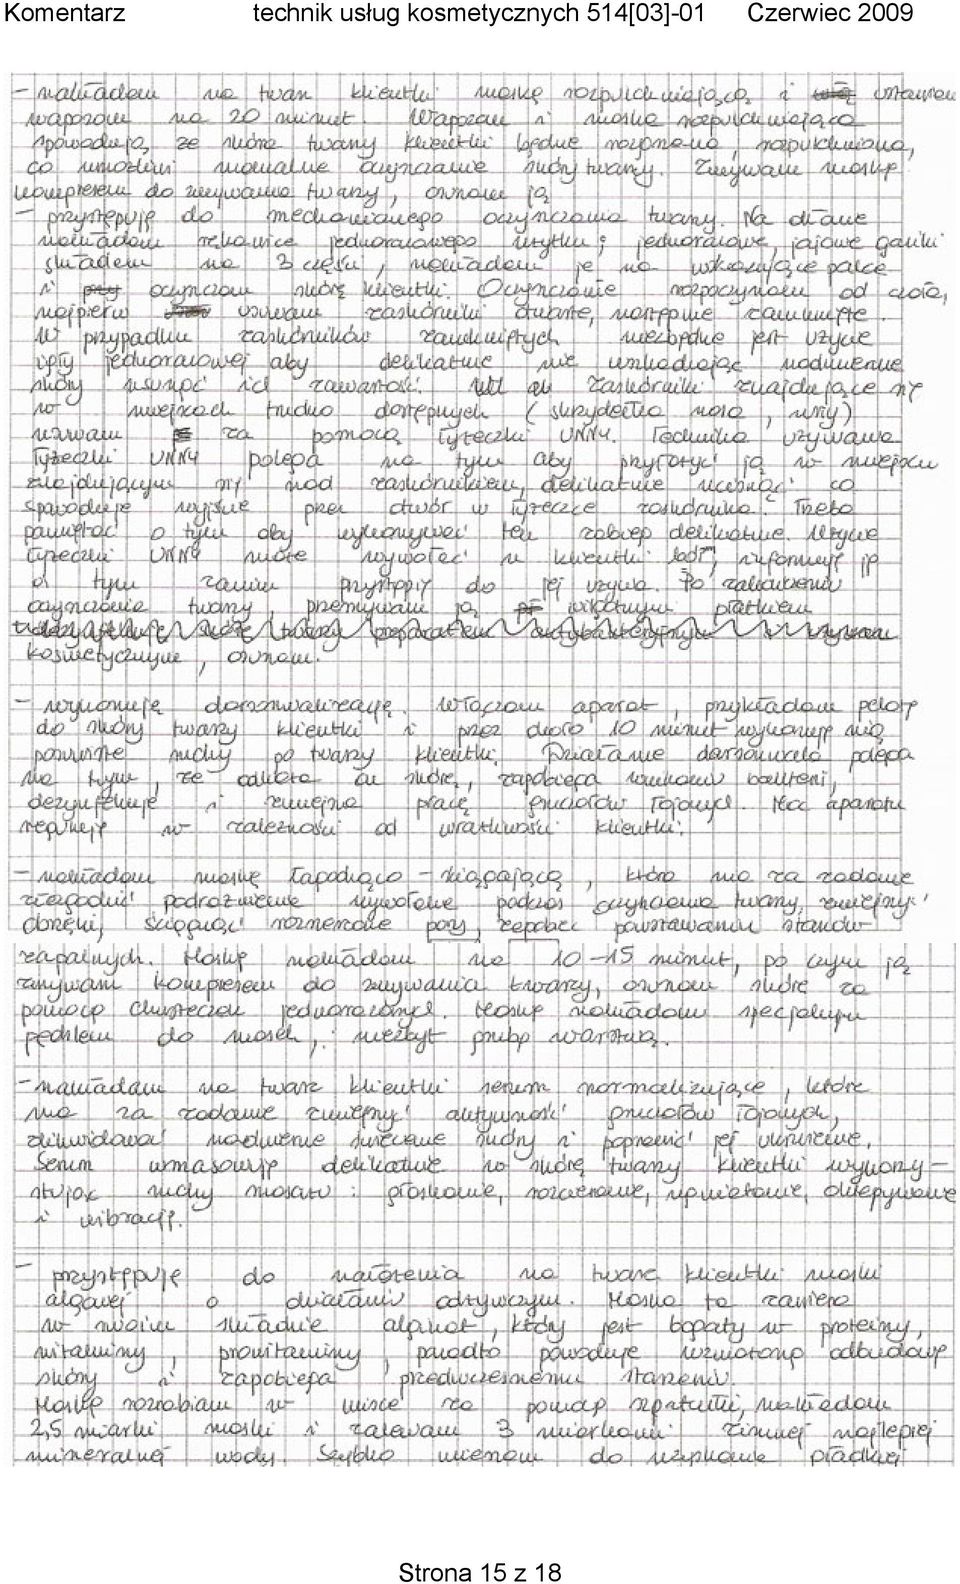 Komentarz technik usług kosmetycznych 514[03]-01 Czerwiec 2009
- nakładam na twarz klientki maskę rozpulchniającą i ustawiam
wapozon na 20 minut. Wapozon i maska rozpulchniająca
spowodują, że skóra twarzy klientki będzie rozgrzana, rozpulchniona,
co umożliwi manualne oczyszczanie skóry twarzy. Zmywam maskę
kompresem do zmywania twarzy, osuszam ją
- przystępuję do mechanicznego oczyszczania twarzy. Na dłonie
nakładam rękawice jednorazowego użytku; jednorazowe, jałowe gaziki
składam na 3 części, nakładam je na wskazujące palce
i oczyszczam skórę klientki. Oczyszczanie rozpoczynam od czoła,
najpierw usuwam zaskórniki otwarte, następnie zamknięte.
W przypadku zaskórników zamkniętych niezbędne jest użycie
igły jednorazowej aby delikatnie nie uszkadzając nadmiernie
skóry usunąć ich zawartość. Zaskórniki znajdujące się
w miejscach trudno dostępnych (skrzydełka nosa, uszy)
usuwam za pomocą łyżeczki UNNY. Technika używania
łyżeczki UNNY polega na tym aby przyłożyć ją w miejscu
znajdującym się nad zaskórnikiem, delikatnie ucisnąć co
spowoduje wyjście przez otwór w łyżeczce zaskórnika. Trzeba
pamiętać o tym aby wykonywać ten zabieg delikatnie. Użycie
łyżeczki UNNY może wywołać u klientki ból, informuję ją
o tym zanim przystąpię do jej użycia. Po zakończeniu
oczyszczania twarzy, przemywam ją wilgotnym płatkiem
kosmetycznym, osuszam.
- wykonuję darsonwalizację. Włączam aparat, przykładam pelotę
do skóry twarzy klientki i przez około 10 minut wykonuję nią
posuwiste ruchy po twarzy klientki. Działanie darsonwala polega
na tym, że odkaża on skórę, zapobiega wnikaniu bakterii,
dezynfekuje i zmniejsza pracę gruczołów łojowych. Moc aparatu
reguluję w zależności od wrażliwości klientki.
- nakładam maskę łagodząco - ściągającą, która ma za zadanie
złagodzić podrażnienie wywołane podczas oczyszczania twarzy, zmniejszyć
obrzęki, ściągnąć rozszerzone pory, zapobiec powstawaniu stanów
zapalnych. Maskę nakładam na 10-15 minut, po czym ją
zmywam kompresem do zmywania twarzy, osuszam skórę za
pomocą chusteczek jednorazowych. Maskę nakładam specjalnym
pędzlem do masek, niezbyt grubą warstwą.
- nakładam na twarz klientki serum normalizujące, które
ma za zadanie zmniejszyć aktywność gruczołów łojowych,
zlikwidować nadmierne świecenie skóry i poprawić jej ukrwienie.
Serum wmasowuję delikatnie w skórę twarzy klientki wykony-
stując ruchy masażu: głaskanie, rozcieranie, ugniatanie, oklepywanie
i wibrację.
- przystępuję do nałożenia na twarz klientki maski
algowej o działaniu odżywczym. Maska ta zawiera
w swoim składzie alginat, który jest bogaty w proteiny,
witaminy, prowitaminy, ponadto powoduje wzmożoną odbudowę
skóry i zapobiega przedwczesnemu starzeniu.
Maskę rozrabiam w misce za pomocą szpatułki, nakładam
2,5 miarki maski i zalewam 3 miarkami zimnej najlepiej
mineralnej wody. Szybko mieszam do uzyskania gładkiej
Strona 15 z 18